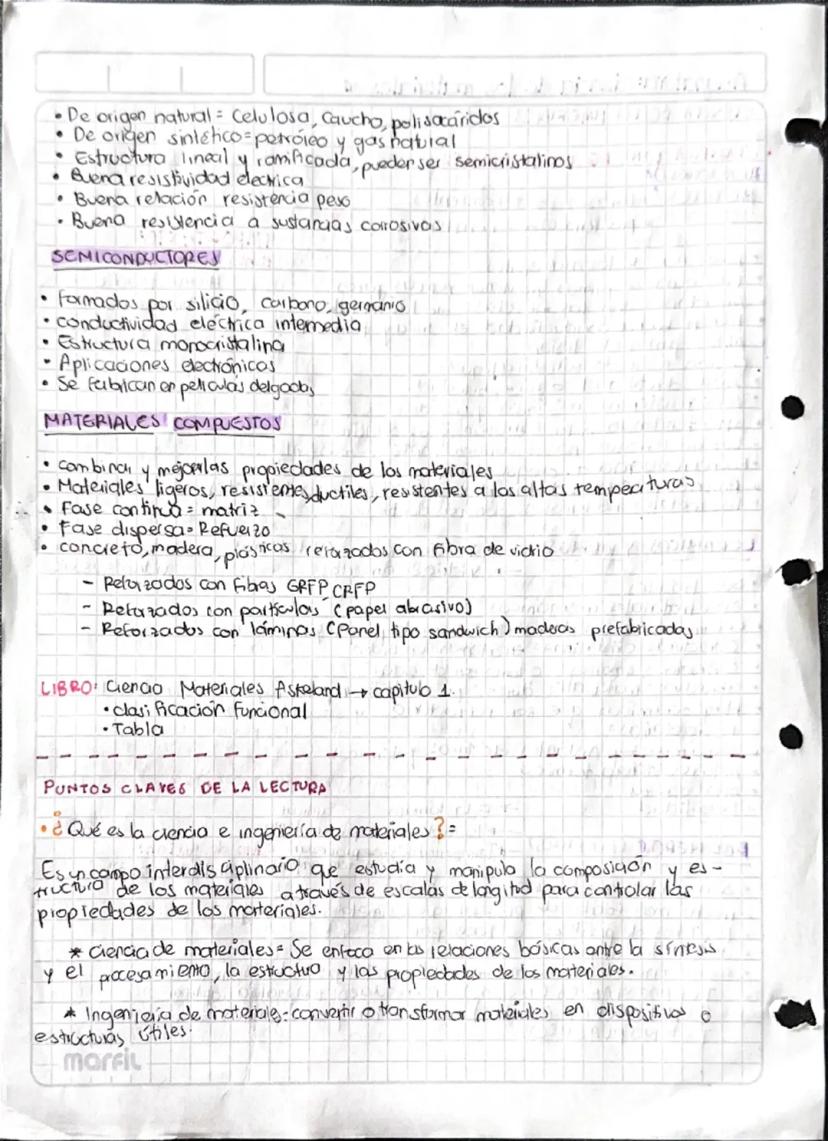 • De origen natural = Celulosa, caucho, polisacáridos
• De origen sintético = petróleo y gas natural
• Estructura lineal y ramificada, pueden ser semicristalinos
• Buena resistividad electrica
• Buena relación resistencia peso
• Buena resistencia a sustancias corrosivas
SEMICONDUCTORES
• Formados por silicio, carbono, germanio
• conductividad eléctrica intermedia
• Estructura monocristalina
• Aplicaciones electrónicas
• Se fabrican en peliculas delgadas
MATERIALES COMPUESTOS
• combinar y mejorlas propiedades de los materiales
• Materiales ligeros, resistentes, ductiles, resistentes a las altas temperaturas
• Fase continua = matriz
• Fase dispersa = Refuerzo
• concreto, madera, plásticos reforzados con fibra de vidrio
- Reforzados con fibras GRFP, CRFP
- Reforzados con particulas (papel abrasivo)
- Reforzados con láminas (Panel tipo sandwich) maderas prefabricadas
LIBRO: Ciencia Materiales Askeland → capitulo 1.
• clasificación funcional
• Tabla
PUNTOS CLAVES DE LA LECTURA
• ¿Qué es la ciencia e ingeniería de materiales? =
Es un campo interdisciplinario que estudia y manipula la composición y es-
tructura de los materiales a través de escalas de longitud para controlar las
propiedades de los materiales.
* ciencia de materiales = Se enfoca en las relaciones básicas entre la síntesis
y el procesamiento, la estructura y las propiedades de los materiales.
* Ingeniería de materiales = convertir o transformar materiales en dispositivos o
estructuras útiles.
marfil